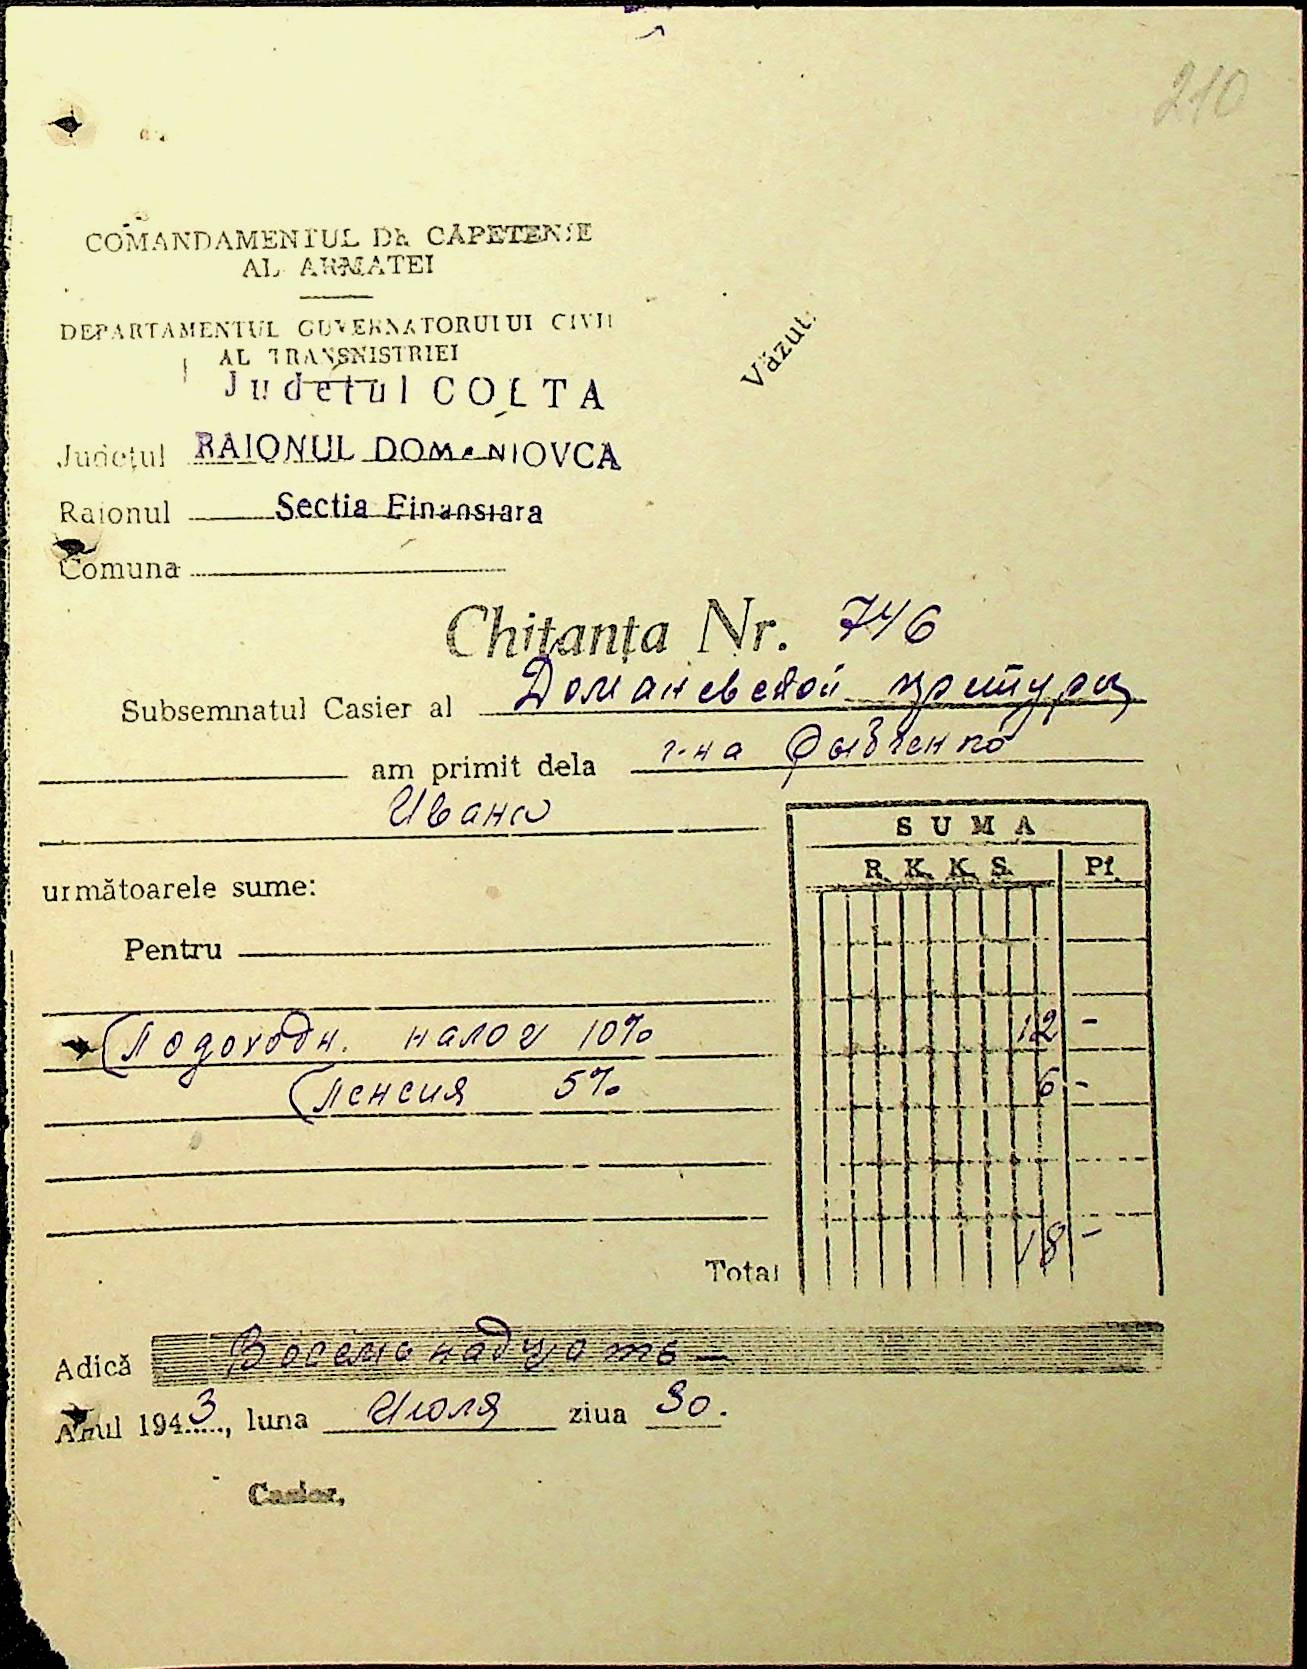 210
COMANDAMENTUL DE CAPETENIE
AL ARMATEI
DEPARTAMENTUL GUVERNATORULUI CIVIL
AL TRANSNISTRIEI
Văzut:
Judetul COLTA
Județul RAIONUL DOMANIOVCA
Raionul Sectia Finansiara
Comuna
Chitanța Nr. 746
Subsemnatul Casier al Доманевской претуры
am primit dela г-на
Ивана
următoarele sume:
SUMA
R. K. K. S. Pf.
Pentru
Подоходн. налог 10% 12 -
Пенсия 5% 6 -
Total 18 -
Adică Восемьнадцать —
Anul 1943, luna Июля ziua 30.
Casier,